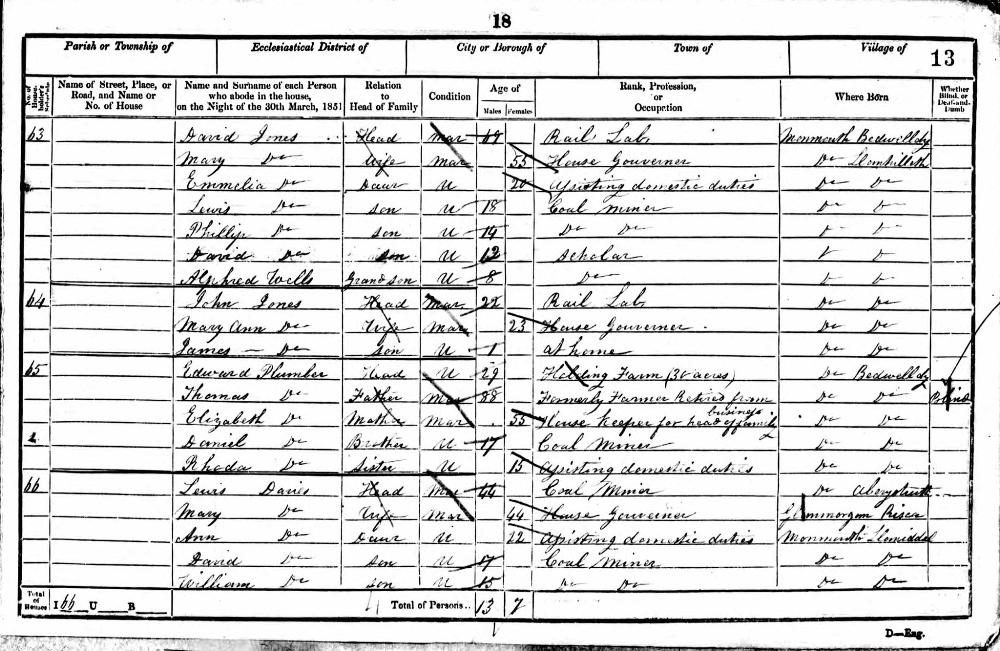 18
Parish or Township of Ecclesiastical District of City or Borough of Town of Village of 13
No. of House-holder's Schedule Name of Street, Place, or Road, and Name or No. of House Name and Surname of each Person who abode in the house, on the Night of the 30th March, 1851 Relation to Head of Family Condition Age of Males Females Rank, Profession, or Occupation Where Born Whether Blind, or Deaf-and-Dumb
63 David Jones Head Mar Rail Lab, Monmouth Bedwellty
Mary Do Wife Mar 55 House Gouverner Do
Emmelia Do Daur U 20 Assisting domestic duties Do Do
Lewis Do son U 18 Coal Miner Do Do
Phillip Do son U 14 Do Do
David Do son U 12 scholar
Alphred Wells Grandson U 8 Do
64 John Jones Head Mar 22 Rail Lab, Do Do
Mary Ann Do Wife Mar 23 House Gouverner Do Do
James Do son U 1 at home Do Do
65 Edward Plumber Head U 29 Holding Farm (30 acres) Do Bedwellty
Thomas Do Father Mar 88 Formerly Farmer Retired from business Do Do Blind
Elizabeth Do Mother Mar 55 House Keeper for head of family Do Do
Daniel Do Brother U 17 Coal Miner Do Do
Rhoda Do Sister U 15 Assisting domestic duties Do Do
66 Lewis Davies Head Mar 44 Coal Miner Do
Mary Do Wife Mar 44 House Gouverner Risca
Ann Do Daur U 22 Assisting domestic duties Monmouth
David Do son U 17 Coal Miner Do Do
William Do son U 15 Do Do Do Do
Total of Houses I 66 U B Total of Persons.. 13 7
D—Eng.